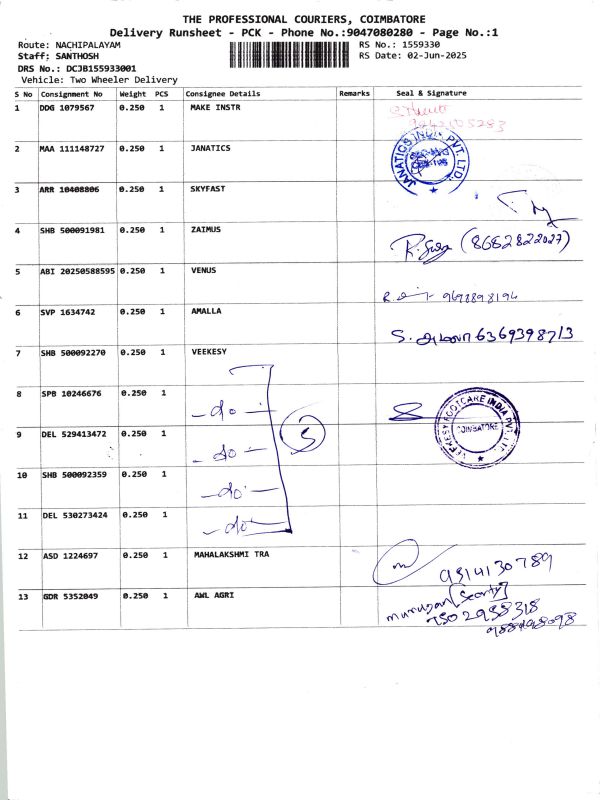 THE PROFESSIONAL COURIERS, COIMBATORE
Delivery Runsheet - PCK - Phone No.:9047080280 - Page No.:1
Route: NACHIPALAYAM RS No.: 1559330
Staff: SANTHOSH RS Date: 02-Jun-2025
DRS No.: DCJB155933001
Vehicle: Two Wheeler Delivery
S No Consignment No Weight PCS Consignee Details Remarks Seal & Signature
1 DDG 1079567 0.250 1 MAKE INSTR
2 MAA 111148727 0.250 1 JANATICS JANATICS INDIA PVT. LTD.
3 ARR 10408806 0.250 1 SKYFAST
4 SHB 500091981 0.250 1 ZAIMUS (8682822027)
5 ABI 20250588595 0.250 1 VENUS 9698898194
6 SVP 1634742 0.250 1 AMALLA S. அமலா 6369398713
7 SHB 500092270 0.250 1 VEEKESY
8 SPB 10246676 0.250 1 -do-
VEEKESY FOOTCARE INDIA PVT. LTD. COIMBATORE
9 DEL 529413472 0.250 1 -do- 5
10 SHB 500092359 0.250 1 -do-
11 DEL 530273424 0.250 1 -do-
12 ASD 1224697 0.250 1 MAHALAKSHMI TRA 9314130789
13 GDR 5352049 0.250 1 AWL AGRI Murugan